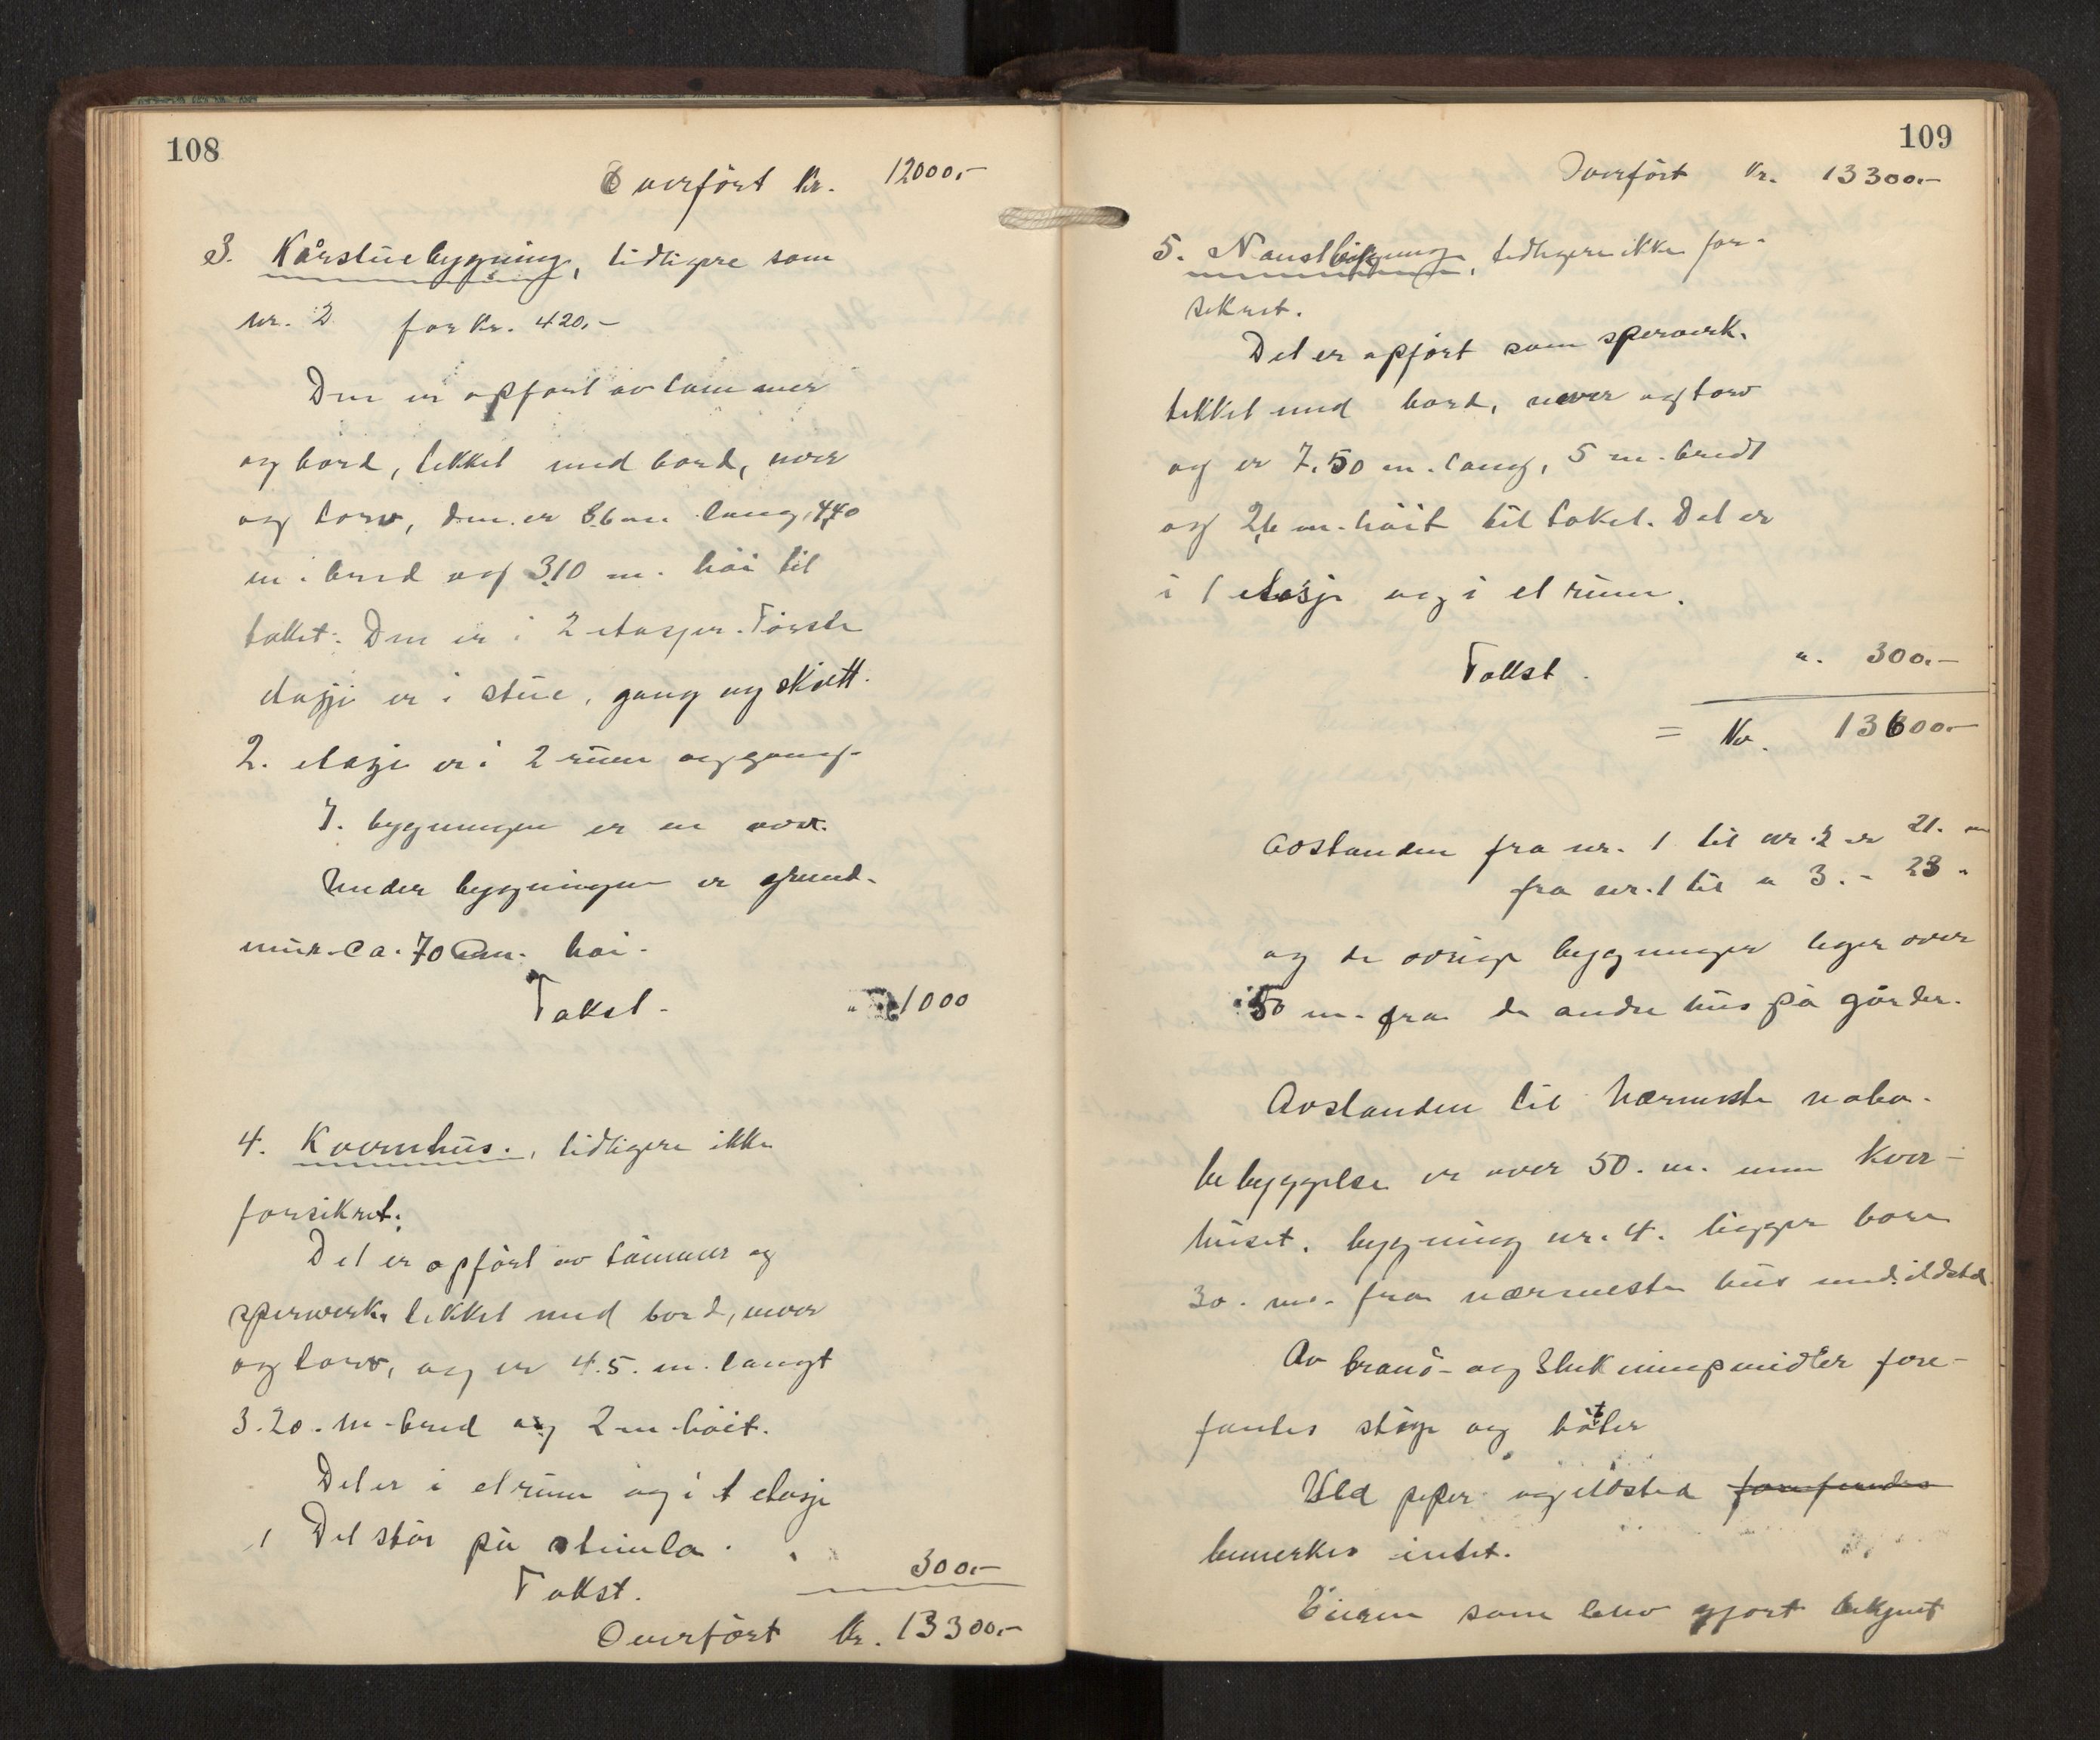 108
Overført kr. 12000.-
3. Kårstuebygning, tidligere som
nr. 2 for kr. 420.-
Den er opført av tømmer
og bord, tekket med bord, never
og torv, den er 8.6 m lang, 4,40
m. bred og 3.10 m. høi til
taket. Den er i 2 etasjer. Første
etasje er i stue, gang og skott.
2. etasje er i 2 rum og gang.
I. bygningen er en ovn.
Under bygningen er grund-
mur. ca. 70 cm. høi.
Takst. " 1000
4. Kvernhus., tidligere ikke
forsikret.
Det er opført av tømmer og
sperverk. tekket med bord, never
og torv, og er 4.5. m. langt
3.20. m. bred og 2 m. høit.
Det er i et rum og i 1 etasje
Det står på stimla.
Takst. 300.-
Overført kr. 13300.-
109
Overført kr. 13300.-
5. Naustbygning, tidligere ikke for-
sikret.
Det er opført som sperverk.
tekket med bord, never og torv
og er 7.50 m. lang, 5 m. bredt
og 2,6 m. høit til taket. Det er
i 1 etasje og i et rum.
Takst. ". 300.-
= Kr. 13600.-
Avstanden fra nr. 1 til nr. 2 er 21. m
fra nr. 1 til " 3. - 23 "
og de øvrige bygninger ligger over
50 m. fra de andre hus på gården.
Avstanden til nærmeste nabo-
bebyggelse er over 50. m. men kver-
huset. bygning nr. 4. ligger bare
30. m. fra nærmeste hus med ildsted.
Av brand- og slukningsmidler fore-
fantes stige og bøtter
Ved piper og ildsted forefandes
bemerkes intet.
Eieren som blev gjort bekjent